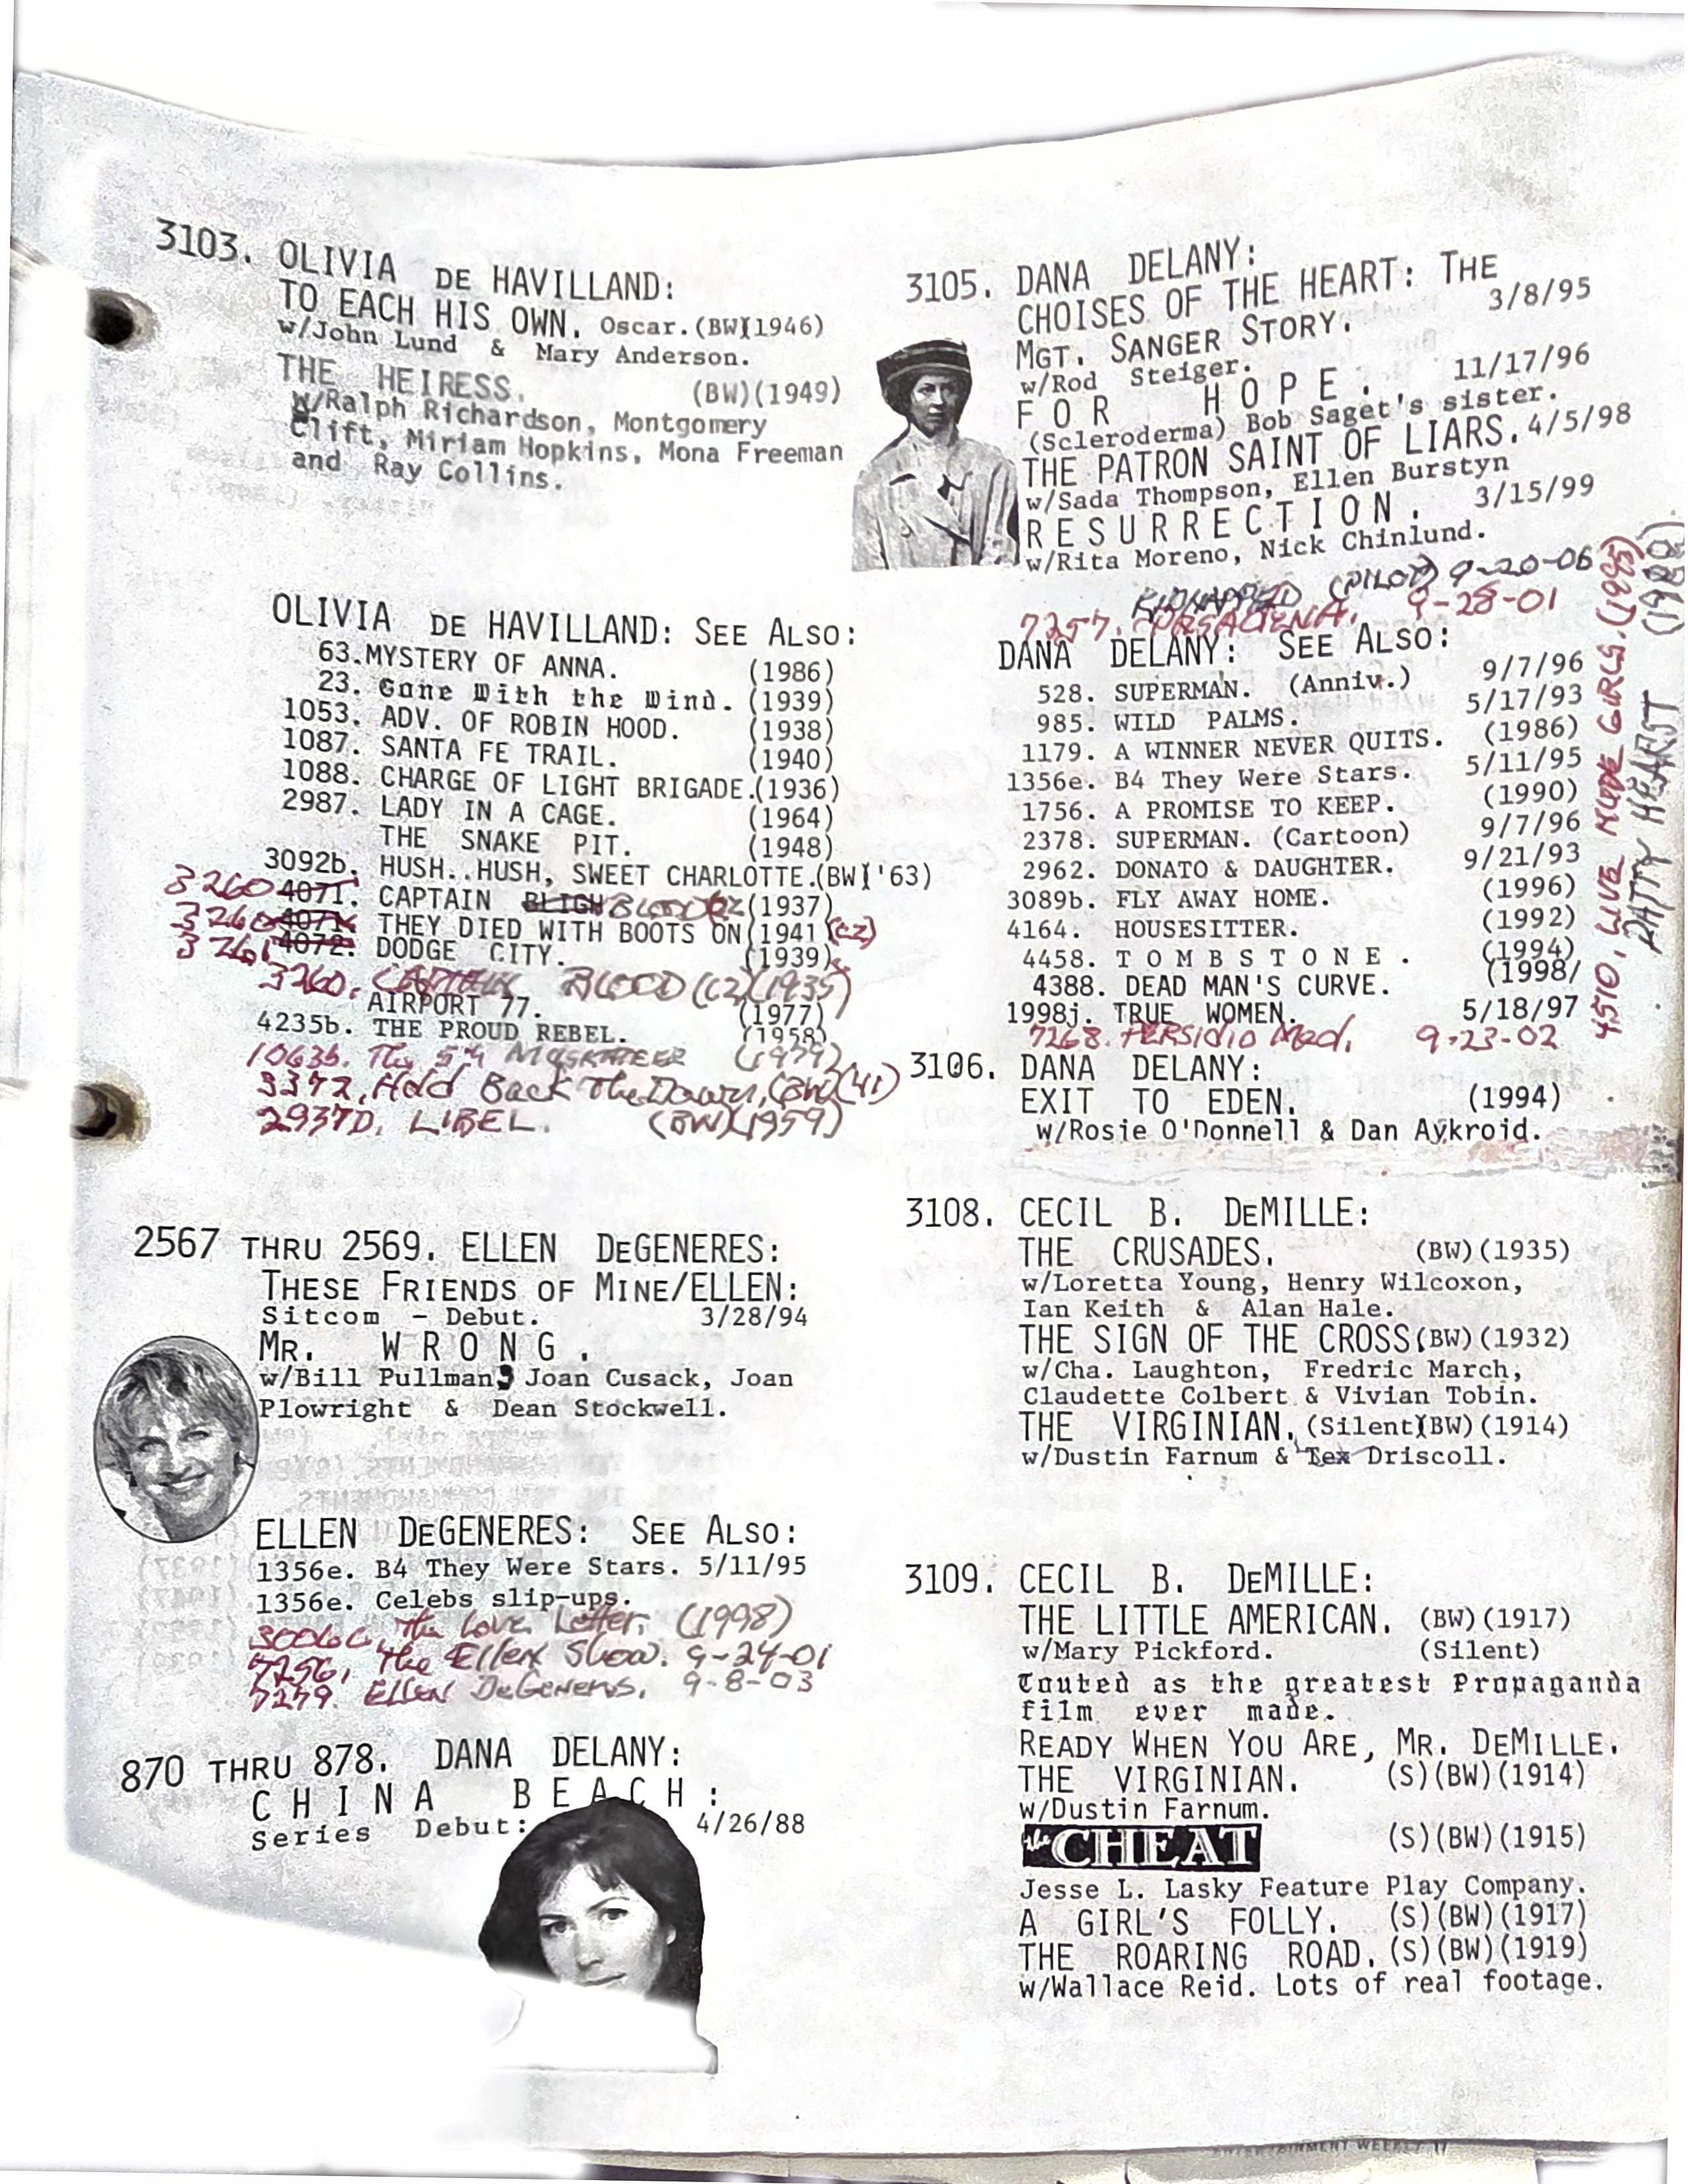 3103. OLIVIA DE HAVILLAND:
TO EACH HIS OWN. Oscar.(BW)(1946)
w/John Lund & Mary Anderson.
THE HEIRESS. (BW)(1949)
w/Ralph Richardson, Montgomery
Clift, Miriam Hopkins, Mona Freeman
and Ray Collins.
OLIVIA DE HAVILLAND: SEE ALSO:
63.MYSTERY OF ANNA. (1986)
23. Gone With the Wind. (1939)
1053. ADV. OF ROBIN HOOD. (1938)
1087. SANTA FE TRAIL. (1940)
1088. CHARGE OF LIGHT BRIGADE.(1936)
2987. LADY IN A CAGE. (1964)
THE SNAKE PIT. (1948)
3092b. HUSH..HUSH, SWEET CHARLOTTE.(BW)('63)
3260 4071. CAPTAIN BLIGH BLOOD CZ (1937)
3260 4071. THEY DIED WITH BOOTS ON(1941 (CZ)
3261 4072. DODGE CITY. (1939)
3260. CAPTAIN BLOOD (CZ)(1935)
AIRPORT 77. (1977)
4235b. THE PROUD REBEL. (1958)
1063b. The 5th MUSKATEER (1979)
3372. Hold Back The Dawn. (BW)(41)
2937D. LIBEL. (BW)(1959)
2567 THRU 2569. ELLEN DEGENERES:
THESE FRIENDS OF MINE/ELLEN:
Sitcom - Debut. 3/28/94
MR. WRONG.
w/Bill Pullman, Joan Cusack, Joan
Plowright & Dean Stockwell.
ELLEN DEGENERES: SEE ALSO:
1356e. B4 They Were Stars. 5/11/95
1356e. Celebs slip-ups.
3006C. The Love Letter. (1998)
7256. The Ellen Show. 9-24-01
7279. Ellen DeGeneres. 9-8-03
870 THRU 878. DANA DELANY:
CHINA BEACH:
Series Debut: 4/26/88
3105. DANA DELANY:
CHOISES OF THE HEART: THE
MGT. SANGER STORY. 3/8/95
w/Rod Steiger.
FOR HOPE. 11/17/96
(Scleroderma) Bob Saget's sister.
THE PATRON SAINT OF LIARS. 4/5/98
w/Sada Thompson, Ellen Burstyn
RESURRECTION. 3/15/99
w/Rita Moreno, Nick Chinlund.
KIDNAPPED (PILOT) 9-20-06
7257. PASADENA. 9-28-01
DANA DELANY: SEE ALSO:
528. SUPERMAN. (Anniv.) 9/7/96
985. WILD PALMS. 5/17/93
1179. A WINNER NEVER QUITS. (1986)
1356e. B4 They Were Stars. 5/11/95
1756. A PROMISE TO KEEP. (1990)
2378. SUPERMAN. (Cartoon) 9/7/96
2962. DONATO & DAUGHTER. 9/21/93
3089b. FLY AWAY HOME. (1996)
4164. HOUSESITTER. (1992)
4458. TOMBSTONE. (1994)
4388. DEAD MAN'S CURVE. (1998/
1998j. TRUE WOMEN. 5/18/97
7268. PERSidio Med. 9-23-02
4510. LIVE NUDE GIRLS. (1995)
PATTY HEARST (1988).
3106. DANA DELANY:
EXIT TO EDEN. (1994)
w/Rosie O'Donnell & Dan Aykroid.
3108. CECIL B. DEMILLE:
THE CRUSADES. (BW)(1935)
w/Loretta Young, Henry Wilcoxon,
Ian Keith & Alan Hale.
THE SIGN OF THE CROSS(BW)(1932)
w/Cha. Laughton, Fredric March,
Claudette Colbert & Vivian Tobin.
THE VIRGINIAN. (Silent)(BW)(1914)
w/Dustin Farnum & Tex Driscoll.
3109. CECIL B. DEMILLE:
THE LITTLE AMERICAN. (BW)(1917)
w/Mary Pickford. (Silent)
Touted as the greatest Propaganda
film ever made.
READY WHEN YOU ARE, MR. DEMILLE.
THE VIRGINIAN. (S)(BW)(1914)
w/Dustin Farnum.
the CHEAT (S)(BW)(1915)
Jesse L. Lasky Feature Play Company.
A GIRL'S FOLLY. (S)(BW)(1917)
THE ROARING ROAD. (S)(BW)(1919)
w/Wallace Reid. Lots of real footage.
ENTERTAINMENT WEEKLY